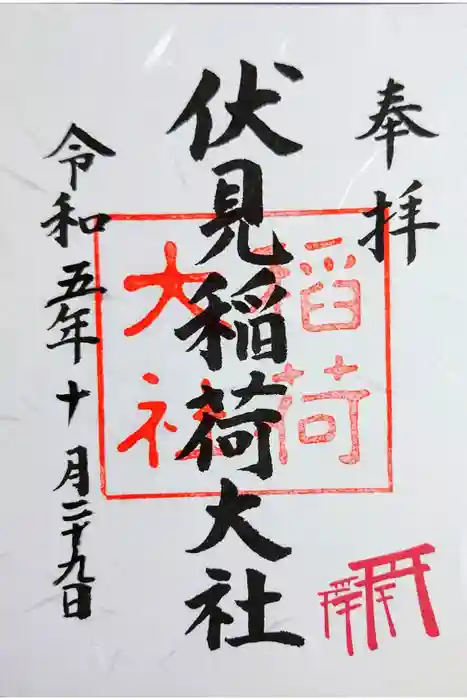 奉拝
伏見稲荷大社
稲荷
大社
令和五年十月二十九日